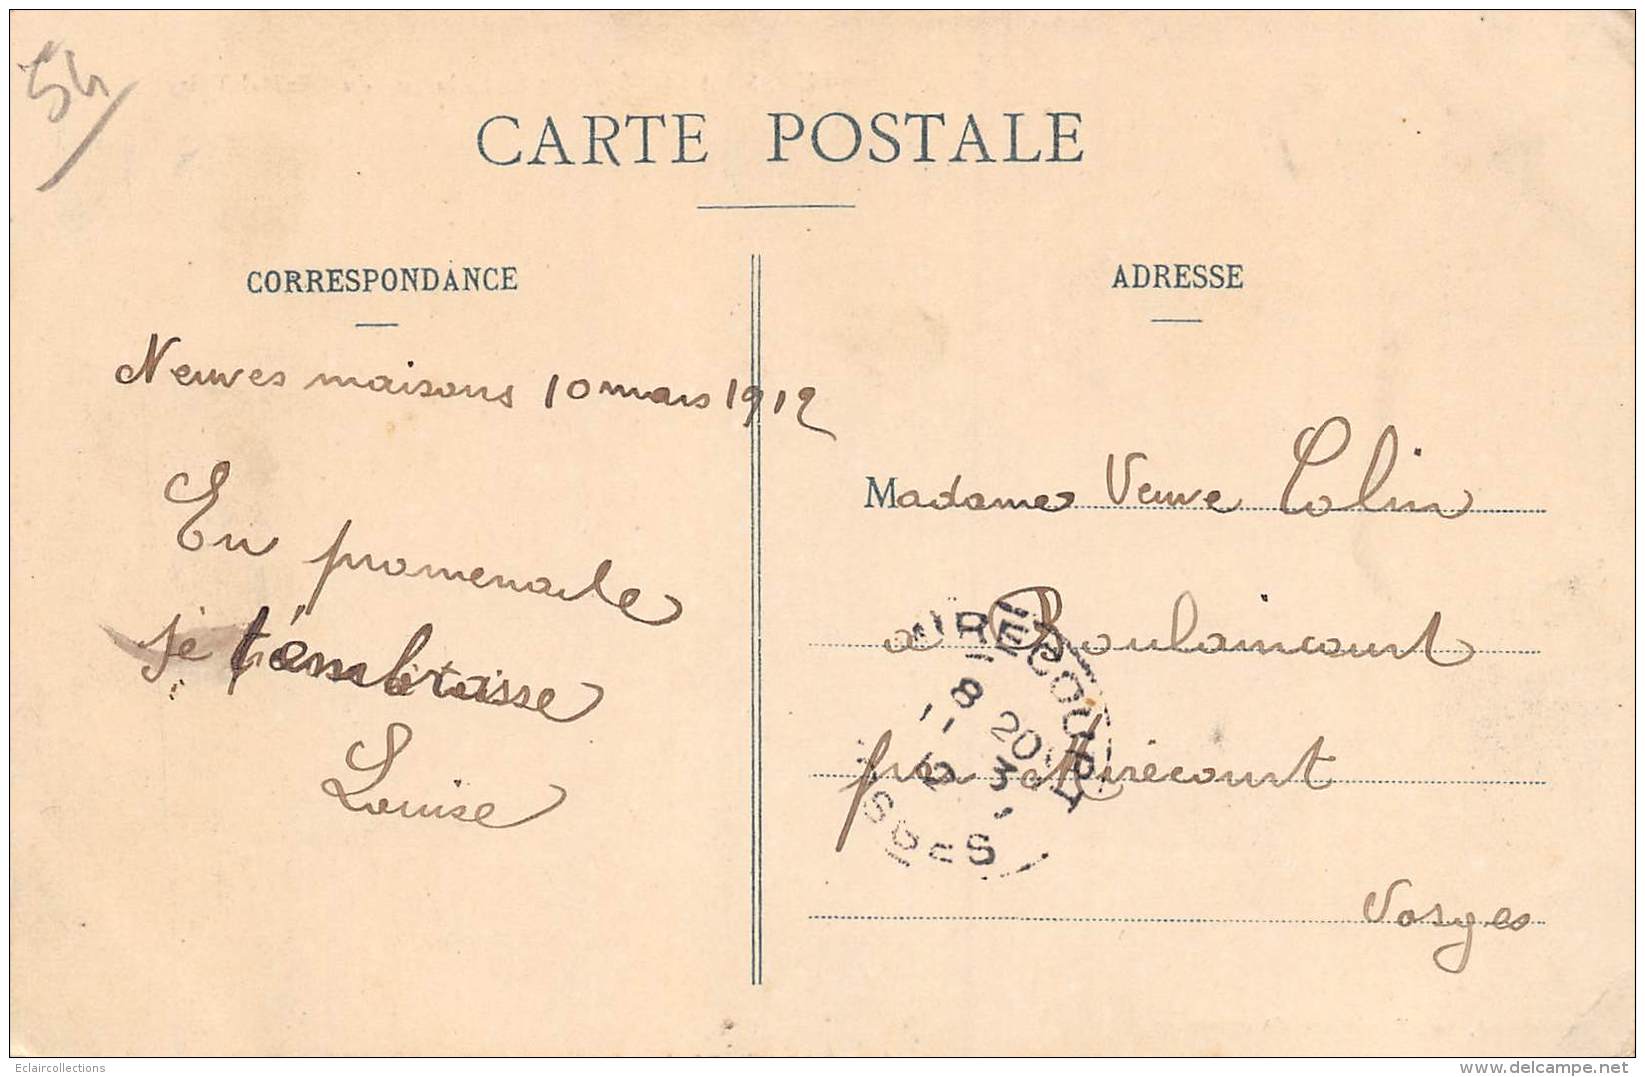 54
CARTE POSTALE
CORRESPONDANCE
Neuves maisons 10 mars 1912
En promenade
je t'embrasse
Louise
ADRESSE
Madame Veuve Colin
a Boulaincourt
par Mirecourt
Vosges
MIRECOURT
8 20
12 3
VOSGES
Eclaircollections
www.delcampe.net